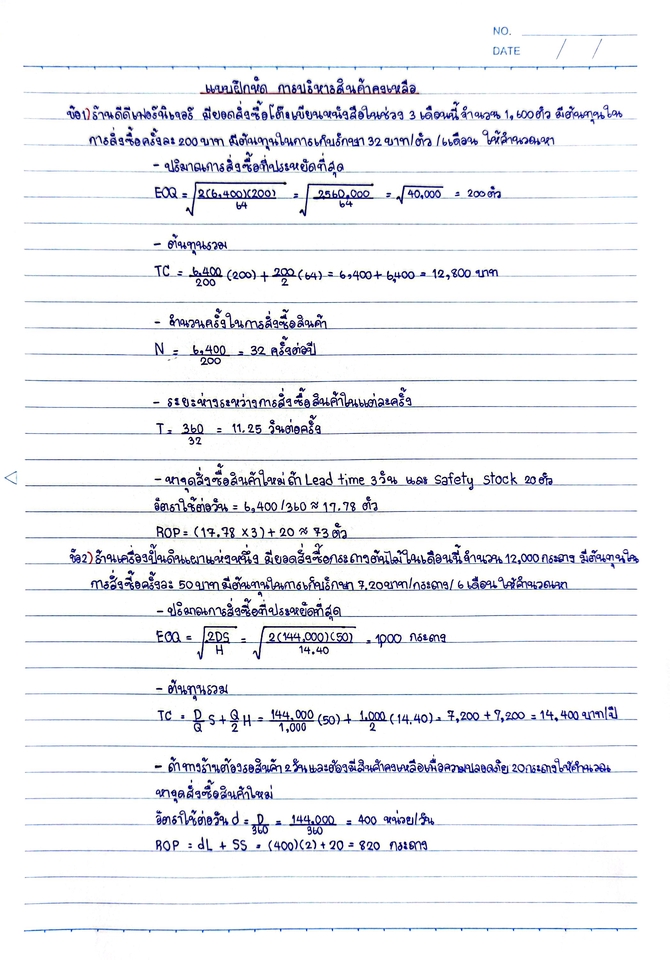 NO.
DATE / /
แบบฝึกหัด การบริหารสินค้าคงเหลือ
ข้อ1) ร้านดีดีเฟอร์นิเจอร์ มียอดสั่งซื้อโต๊ะเขียนหนังสือในช่วง 3 เดือนนี้ จำนวน 1,600 ตัว มีต้นทุนใน
การสั่งซื้อครั้งละ 200 บาท มีต้นทุนในการเก็บรักษา 32 บาท/ตัว/6เดือน ให้คำนวณหา
- ปริมาณการสั่งซื้อที่ประหยัดที่สุด
EOQ = √(2(6,400)(200)/64) = √(2560,000/64) = √40,000 = 200 ตัว
- ต้นทุนรวม
TC = 6,400/200 (200) + 200/2 (64) = 6,400 + 6,400 = 12,800 บาท
- จำนวนครั้งในการสั่งซื้อสินค้า
N = 6,400/200 = 32 ครั้งต่อปี
- ระยะห่างระหว่างการสั่งซื้อสินค้าในแต่ละครั้ง
T = 360/32 = 11.25 วันต่อครั้ง
- หาจุดสั่งซื้อสินค้าใหม่ ถ้า Lead time 3 วัน และ Safety stock 20 ตัว
อัตราใช้ต่อวัน = 6,400/360 ≈ 17.78 ตัว
ROP = (17.78 x 3) + 20 ≈ 73 ตัว
ข้อ2) ร้านเครื่องปั้นดินเผาแห่งหนึ่ง มียอดสั่งซื้อกระถางต้นไม้ในเดือนนี้ จำนวน 12,000 กระถาง มีต้นทุนใน
การสั่งซื้อครั้งละ 50 บาท มีต้นทุนในการเก็บรักษา 7.20 บาท/กระถาง/6 เดือน ให้คำนวณหา
- ปริมาณการสั่งซื้อที่ประหยัดที่สุด
EOQ = √(2DS/H) = √(2(144,000)(50)/14.40) = 1,000 กระถาง
- ต้นทุนรวม
TC = D/Q S + Q/2 H = 144,000/1,000 (50) + 1,000/2 (14.40) = 7,200 + 7,200 = 14,400 บาท/ปี
- ถ้าทางร้านต้องรอสินค้า 2 วัน และต้องมีสินค้าคงเหลือเพื่อความปลอดภัย 20 กระถาง ให้คำนวณ
หาจุดสั่งซื้อสินค้าใหม่
อัตราใช้ต่อวัน d = D/360 = 144,000/360 = 400 หน่วย/วัน
ROP = dL + SS = (400)(2) + 20 = 820 กระถาง